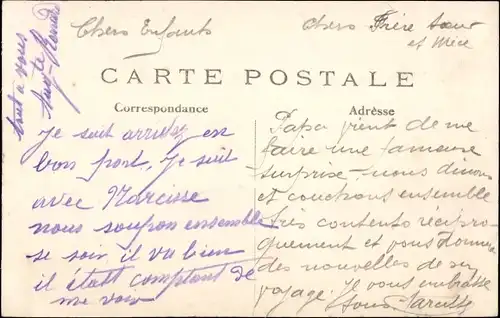 Chers Enfants
Chers Frère Sœur
et Mère
CARTE POSTALE
Correspondance
Adresse
Je suit arrivez en
bon port, Je suit
avec Narcisse
nous soupon ensemble
se soir il va bien
il étatt comptant de
me voir
tout a vous
Papa vient de me
faire une fameuse
surprise - nous dinons
et couchons ensemble
très contents récipro-
quement et vous donnera
des nouvelles de son
voyage. Je vous embrasse
tous Narcisse